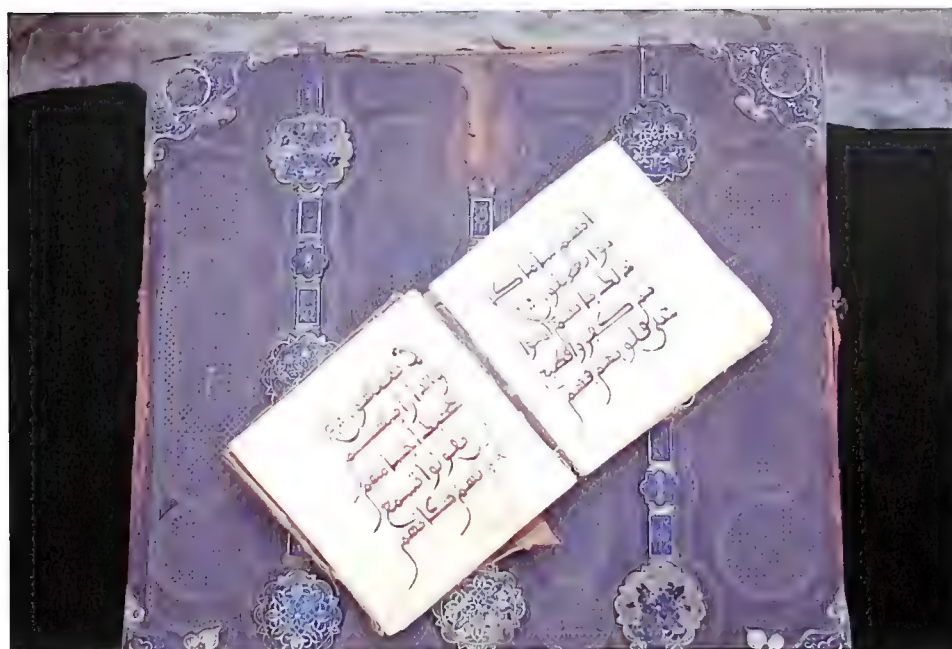 انهم سا ما كا
نوا يعملون
ذلك بانهم امنوا
ثم كفروا فطبع
على قلوبهم فهم
لا يفقهون
واذا رايتهم
تعجبك اجسامهم
يقولوا تسمع
كانهم